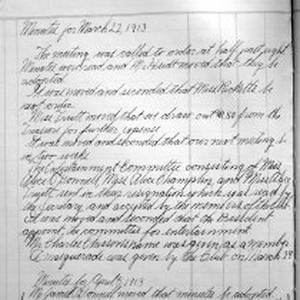 Minutes for March 22, 1913
The meeting was called to order at half past eight
Minutes were read and moved that they be
adopted
It was moved and seconded that Miss Ricketts be
next order
Miss moved that we draw out from the
treasurer for further expense
It was moved and seconded that our next meeting be
in two weeks
The Entertainment Committee consisting of Miss
Alice O'Connell, Miss Alice Champlin, and Miss
sent in their resignation which was read by
the Secretary and accepted by the members of the club
It was moved and seconded that the President
appoint the committee for entertainment
Mr. Charles name was given as a member
A masquerade was given by the Club on March 28
Minutes for April 5, 1913
moved that minutes be adopted